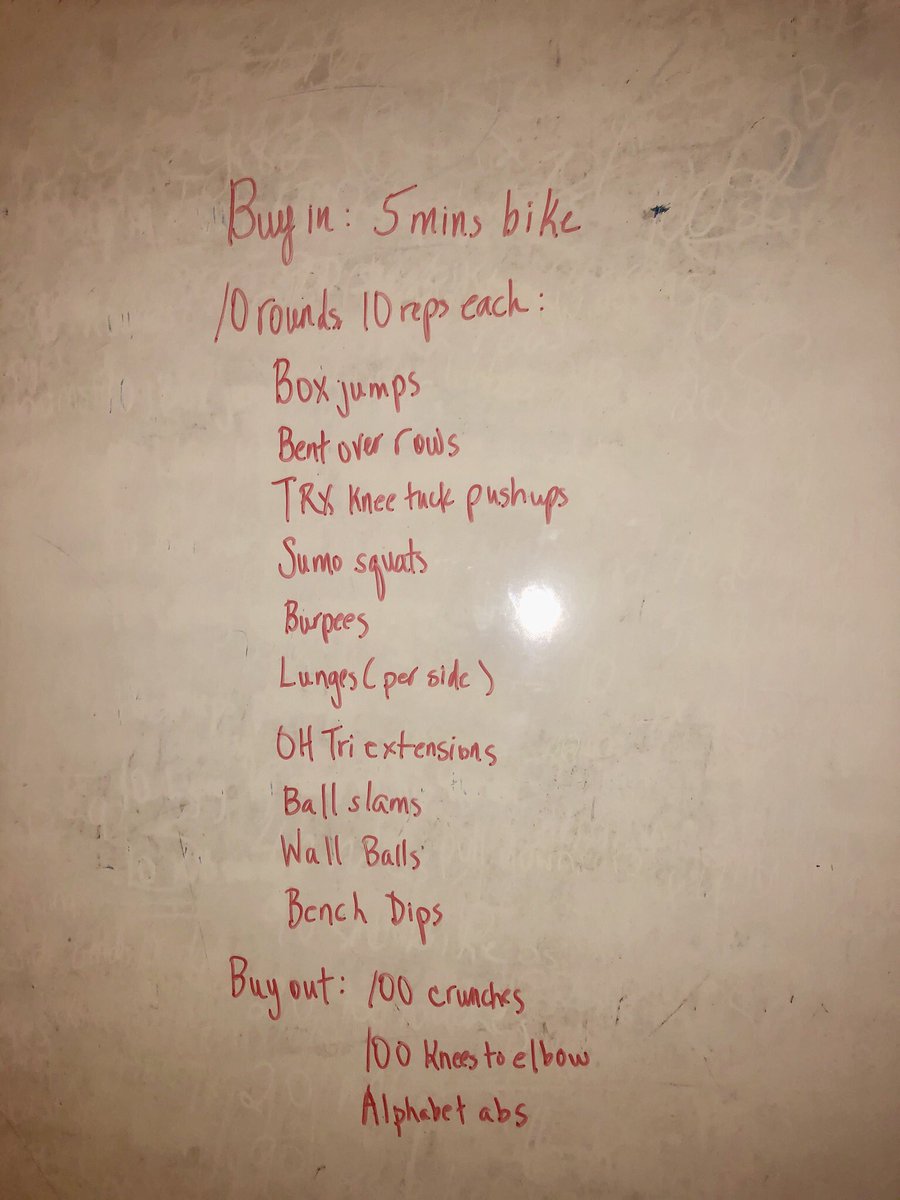 Buy in: 5 mins bike
10 rounds 10 reps each:
Box jumps
Bent over rows
TRX Knee tuck pushups
Sumo squats
Burpees
Lunges (per side)
OH Tri extensions
Ball slams
Wall Balls
Bench Dips
Buy out: 100 crunches
100 Knees to elbow
Alphabet abs